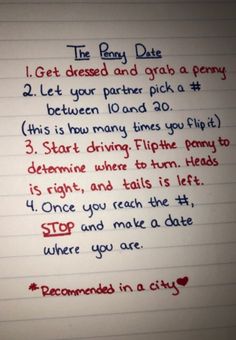 The Penny Date
1. Get dressed and grab a penny
2. Let your partner pick a #
between 10 and 20.
(this is how many times you flip it)
3. Start driving. Flip the penny to
determine where to turn. Heads
is right, and tails is left.
4. Once you reach the #,
STOP and make a date
where you are.
*Recommended in a city♥